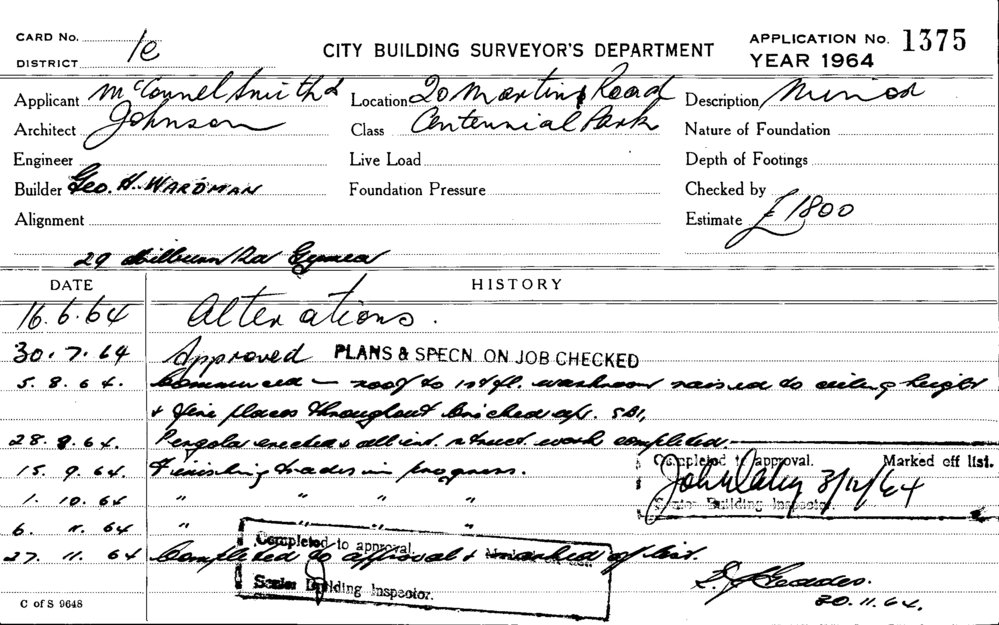 CARD No. 1e
DISTRICT
CITY BUILDING SURVEYOR'S DEPARTMENT
APPLICATION No. 1375
YEAR 1964
Applicant McConnel Smith &
Architect Johnson
Engineer
Builder Geo. H. WARDMAN
Alignment
29 Milburn Rd Gymea
Location 20 Martin Road
Class Centennial Park
Live Load
Foundation Pressure
Description Minor
Nature of Foundation
Depth of Footings
Checked by
Estimate £1800
DATE HISTORY
16.6.64 Alterations.
30.7.64 Approved PLANS & SPECN. ON JOB CHECKED
5.8.64. Commenced — roof to 1st fl. washroom raised to ceiling height
& fire places throughout bricked up.
28.8.64. Pergola erected & all int. struct. work completed
15.9.64. Finishing trades in progress.
1.10.64 " " " "
6.11.64 " " " "
27.11.64 Completed to approval & marked off list.
Completed to approval. Marked off list.
3/12/64
Senior Building Inspector.
Completed to approval.
Senior Building Inspector.
30.11.64.
C of S 9648